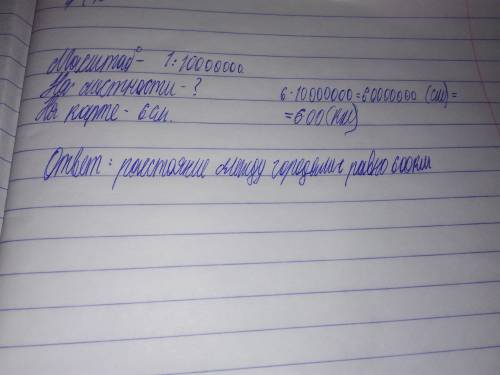 Масштаб - 1:10000000
На местности - ? 6·10000000=60000000 (см)=
На карте - 6 см. =600 (км)
Ответ: расстояние между городами равно 600км